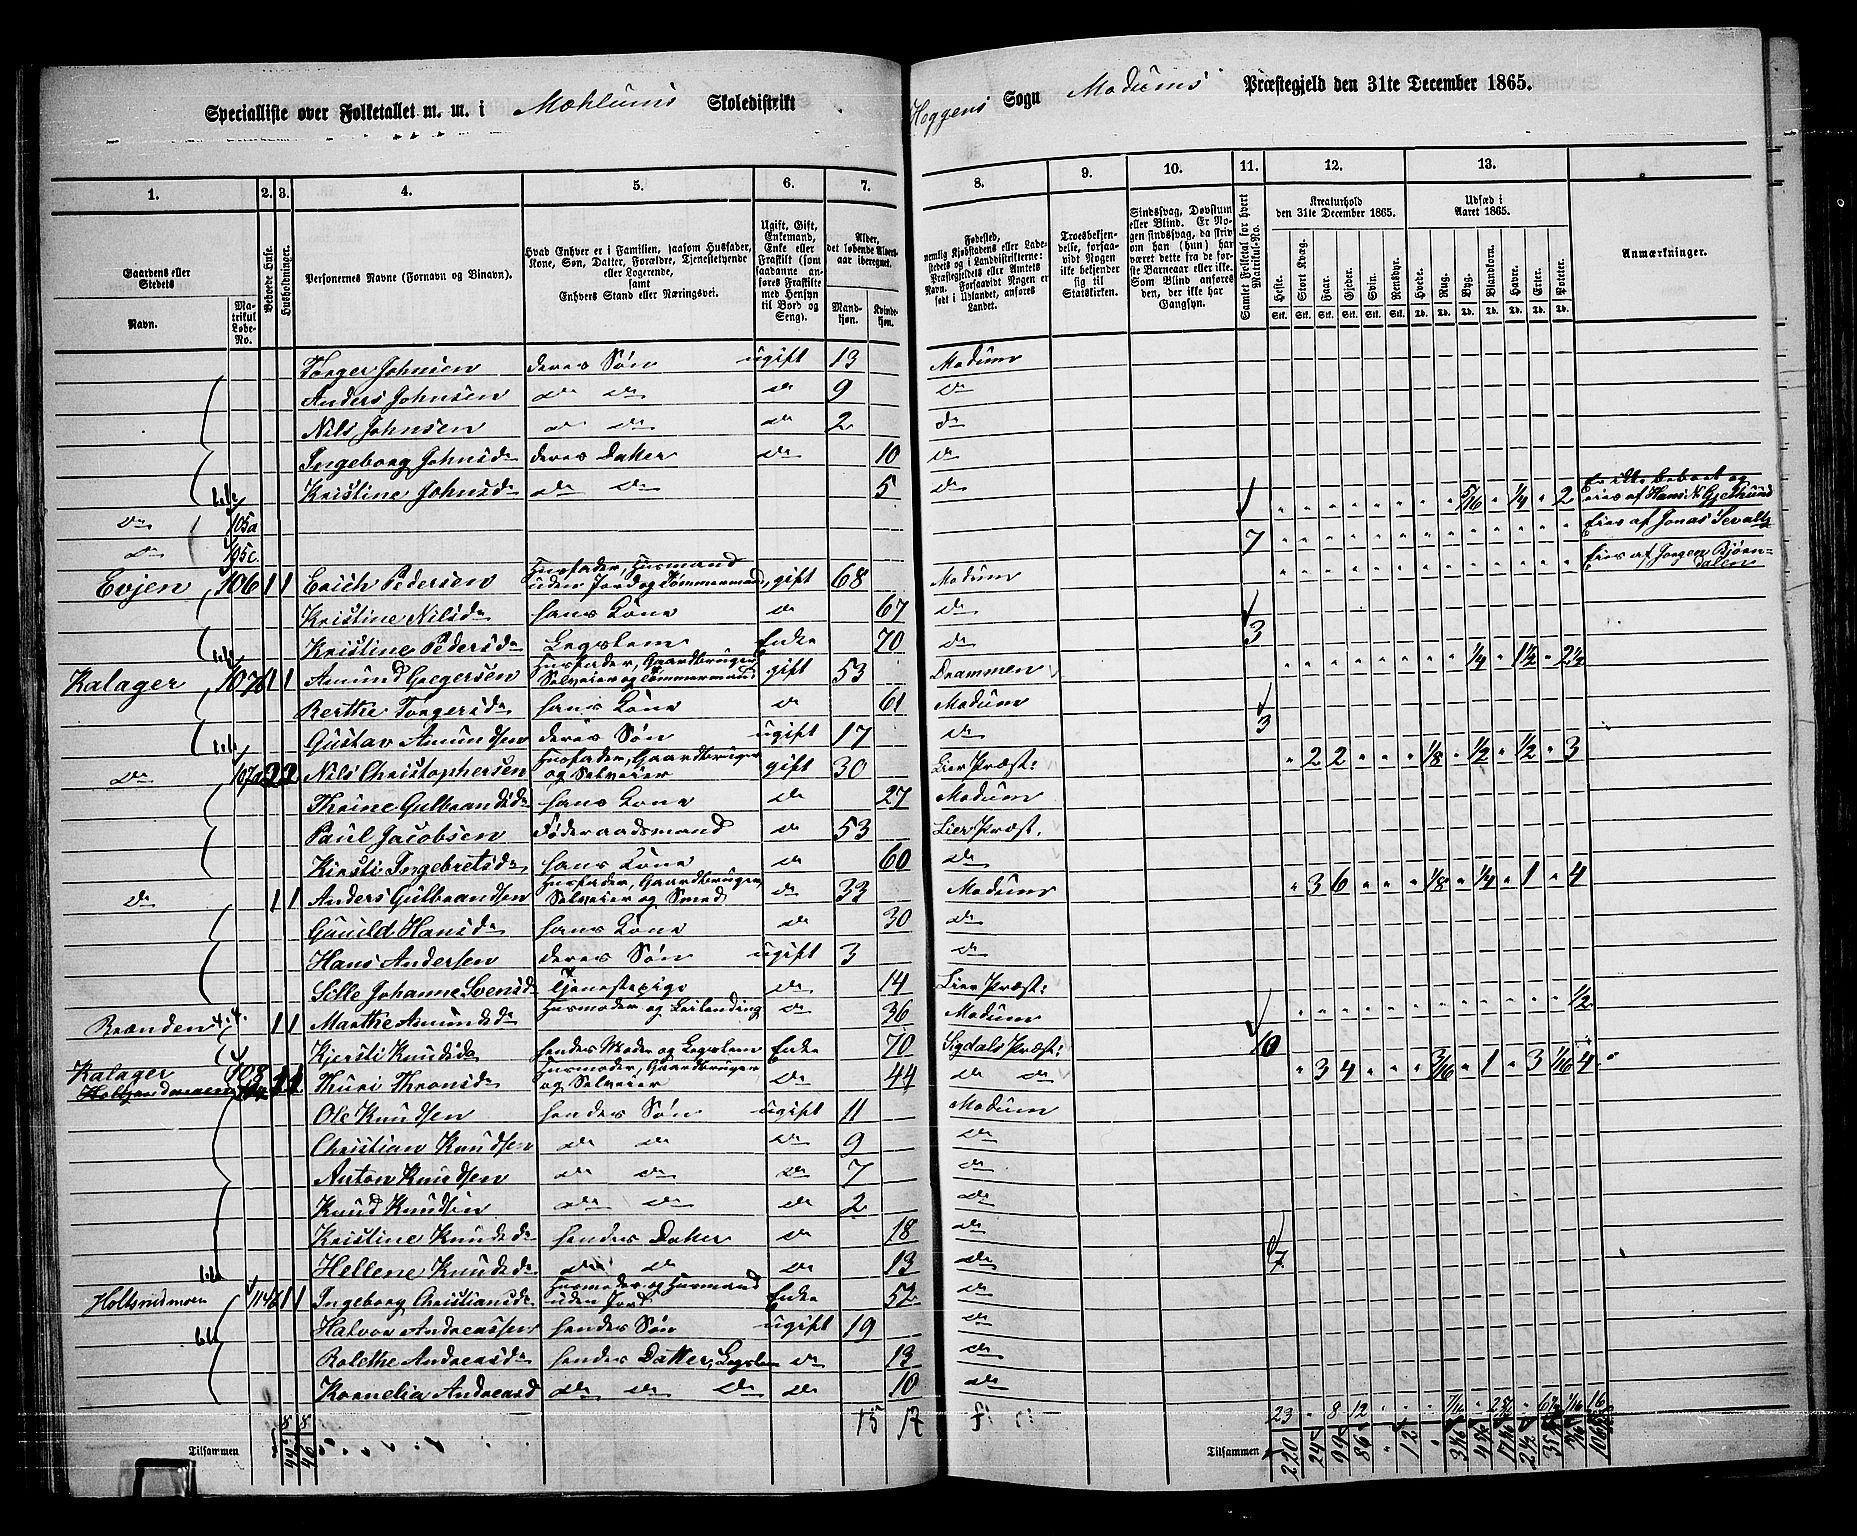 Specialliste over Folketallet m. m. i Mæhlums Skoledistrikt Heggens Sogn Modums Præstegjeld den 31te December 1865.
1. 2. 3. 4. 5. 6. 7. 8. 9. 10. 11. 12. 13.
Gaardens eller Stedets Navn. Matrikul Løbe-No. Beboede Huse. Husholdninger. Personernes Navne (Fornavn og Binavn). Hvad Enhver er i Familien, saasom Husfader, Kone, Søn, Datter, Forældre, Tjenestetyende eller Logerende, samt Enhvers Stand eller Næringsvei. Ugift, Gift, Enkemand, Enke eller Fraskilt (som saadanne anføres Fraskilte med Hensyn til Bord og Seng). Alder, det løbende Alders-aar iberegnet. Mandkjøn. Kvindekjøn.
Fødested, nemlig Kjøbstadens eller Ladestedets og i Landdistrikterne: Præstegjeldets eller Amtets Navn. Forsaavidt Nogen født i Udlandet, anføres Landet. Troesbekjendelse, forsaavidt Nogen ikke bekjender sig til Statskirken. Sindssvag, Døvstum eller Blind. Er Nogen sindssvag, da skriv om han (hun) har været dette fra de første Barneaar eller ikke. Som Blind anføres den, der ikke har Gangsyn. Samlet Folketal for hvert Matrikul-No. Kreaturhold den 31te December 1865. Heste. Stort Kvæg. Faar. Gjeder. Svin. Rensdyr. Udsæd i Aaret 1865. Hvede. Rug. Byg. Blandkorn. Havre. Erter. Poteter. Anmærkninger.
Torger Johnsen deres Søn ugift 13 Modum
Anders Johnsen do do do 9 do
Nils Johnsen do do do 2 do
Ingeborg Johnsd. deres Datter do 10 do
Kristine Johnsd. do do 5 do 5/16 1/4 2 Er ikke beboet og Eies af Hans N. Gjethund
do 105a 1 Eies af Jonas Sevalds
do 105c 7 Eies af Jørgen Bjørndalen
Evjen 106 1 1 Erich Pedersen Husfader, Husmand uden Jord og Tømmermand gift 68 Modum
Kristine Nilsd. hans Kone do 67 do
Kristine Pedersd. Legslem Enke 70 do 3 1/4 1 1/2 2 1/2
Kalager 107b 1 1 Amund Gregersen Husfader, Gaardbruger, Selveier og Tømmermand gift 53 Drammen
Berthe Torgersd. hans Kone do 61 Modum
Gustav Amundsen deres Søn ugift 17 do 3
do 107a 2 2 Nils Christophersen Husfader, Gaardbruger og Selveier gift 30 Lier Præst: 2 2 1/8 1/2 1/2 3
Thrine Gulbrandsd. hans Kone do 27 Modum
Paul Jacobsen Føderaadsmand do 53 Lier Præst.
Kirsti Ingebretsd. hans Kone do 60 do
do 1 1 Anders Gulbrandsen Husfader, Gaardbruger, Selveier og Smed do 33 Modum 3 6 1/8 1/4 1 4
Gunild Hansd. hans Kone do 30 do
Hans Andersen deres Søn ugift 3 do
Sille Johanne Svensd. Tjenestepige do 14 Lier Præst:
Brænden 1 1 Marthe Amundsd. Husmoder og Leilending do 36 Modum 1/2
Kjersti Knudsd. hendes Moder og Legslem Enke 70 Sigdals Præst: 10
Kalager 108 1 1 Thuri Thronsd. Husmoder, Gaardbruger og Selveier do 44 do do 3 4 3/16 1 3 1/16 4
Ole Knudsen hendes Søn ugift 11 Modum
Christian Knudsen do do do 9 do
Anton Knudsen do do do 7 do
Knud Knudsen do do do 2 do
Kristine Knudsd. hendes Datter do 18 do
Hellene Knudsd. do do do 13 do 7
Holtsrudmoen 114b 1 1 Ingeborg Christiansd. Husmoder og Husmand uden Jord Enke 52 do
Halvor Andreassen hendes Søn ugift 19 do
Bolethe Andreasd. hendes Datter, Legslem do 13 do
Kornelia Andreasd do do do do 10 do
8 8 15 17 23 8 12
Tilsammen 44 46 Tilsammen 220 24 99 86 12